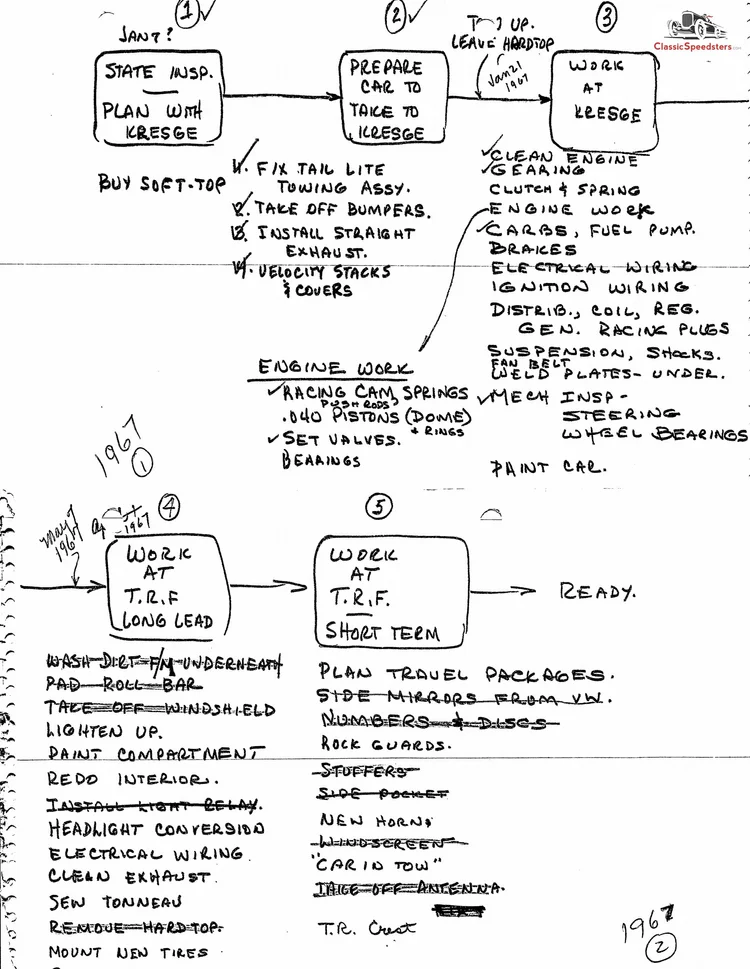 ① ✓
JAN 7?
STATE INSP.
PLAN WITH
KRESGE
BUY SOFT-TOP
② ✓
PREPARE
CAR TO
TAKE TO
KRESGE
✓1. FIX TAIL LITE
TOWING ASSY.
✓2. TAKE OFF BUMPERS.
✓3. INSTALL STRAIGHT
EXHAUST.
✓4. VELOCITY STACKS
& COVERS
UP.
LEAVE HARDTOP
Jan 21
1967
③
ClassicSpeedsters.com
WORK
AT
KRESGE
✓CLEAN ENGINE
✓GEARING
CLUTCH & SPRING
ENGINE WORK
✓CARBS, FUEL PUMP.
BRAKES
ELECTRICAL WIRING
IGNITION WIRING
DISTRIB., COIL, REG.
GEN. RACING PLUGS
SUSPENSION, SHOCKS.
FAN BELT
WELD PLATES-UNDER.
✓MECH INSP-
STEERING
WHEEL BEARINGS
PAINT CAR.
ENGINE WORK
✓RACING CAM, SPRINGS
PUSH RODS,
.040 PISTONS (DOME)
& RINGS
✓SET VALVES.
BEARINGS
1967
①
May 7
1967
1967
④
WORK
AT
T.R.F
LONG LEAD
WASH DIRT F/M UNDERNEATH
PAD ROLL BAR
TAKE OFF WINDSHIELD
LIGHTEN UP.
PAINT COMPARTMENT
REDO INTERIOR.
INSTALL LIGHT RELAY.
HEADLIGHT CONVERSION
ELECTRICAL WIRING.
CLEAN EXHAUST.
SEW TONNEAU
REMOVE HARD TOP.
MOUNT NEW TIRES
⑤
WORK
AT
T.R.F.
SHORT TERM
READY.
PLAN TRAVEL PACKAGES.
SIDE MIRRORS FROM VW.
NUMBERS & DISCS
ROCK GUARDS.
STUFFERS
SIDE POCKET
NEW HORNS
WINDSCREEN
"CAR IN TOW"
TAKE OFF ANTENNA.
T.R. Crest
1967
②